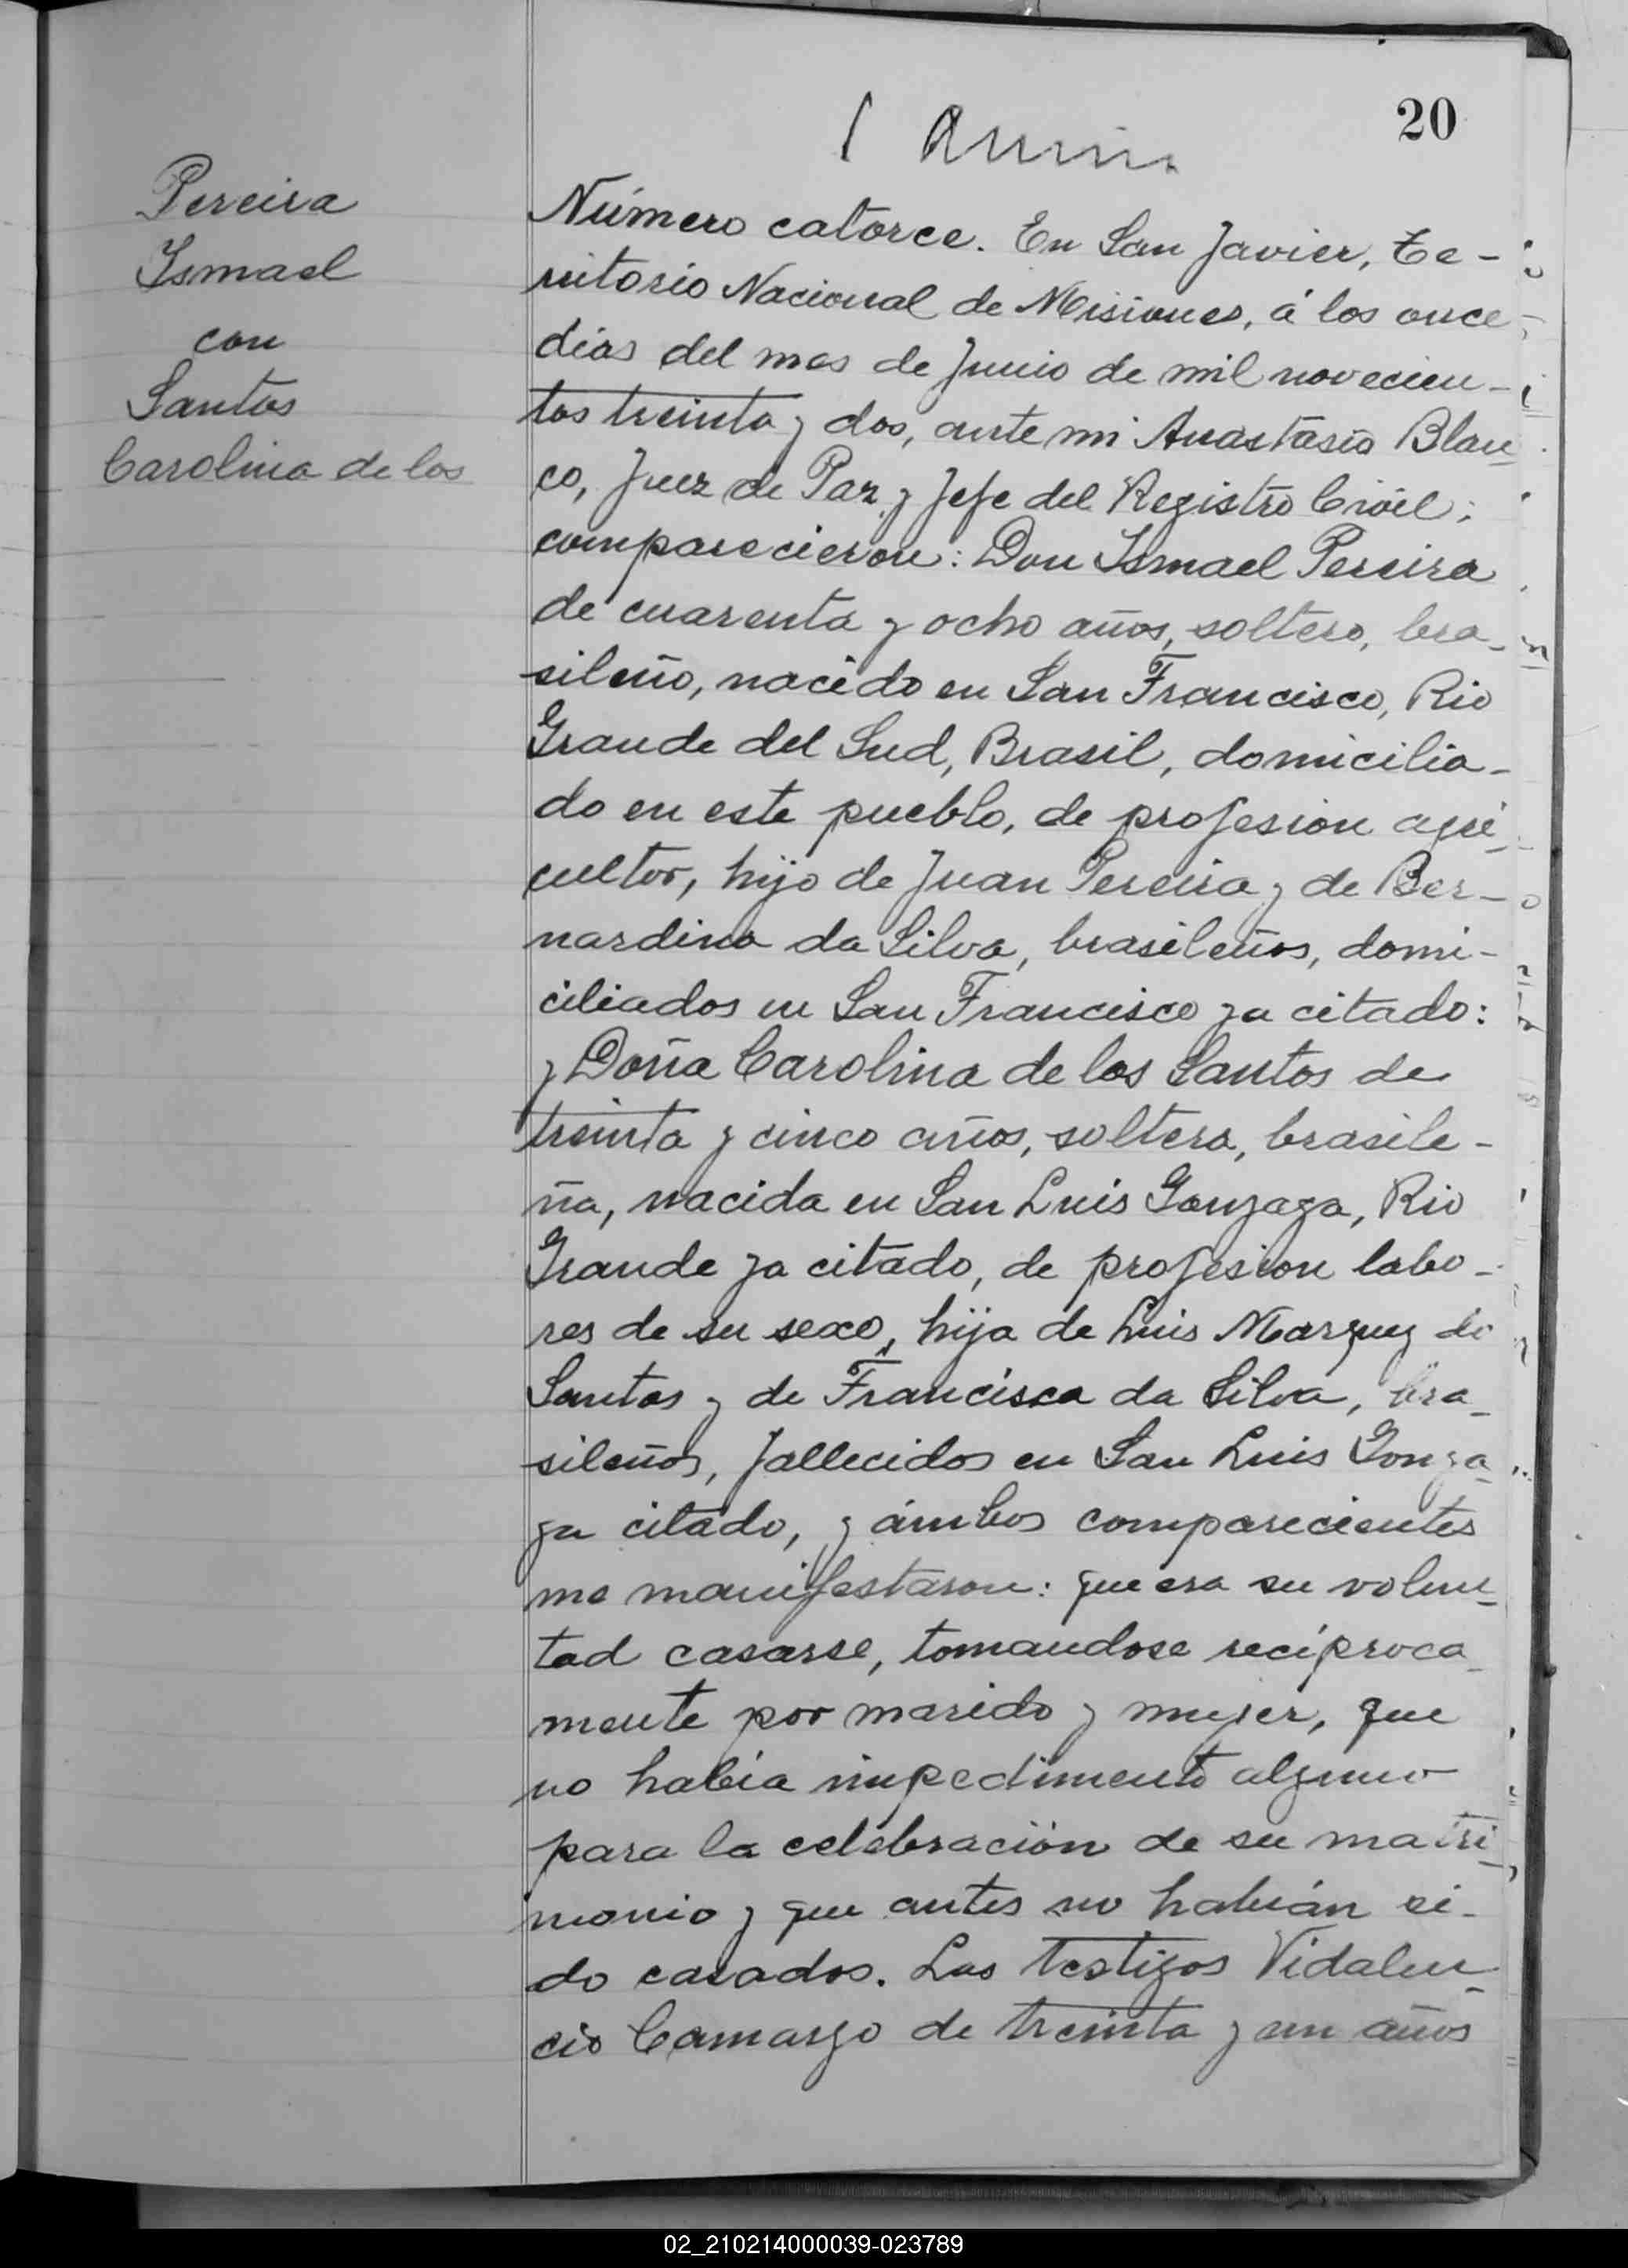 20
Pereira
Ismael
con
Santos
Carolina de los
Número catorce. En San Javier, Te-
rritorio Nacional de Misiones, á los once
días del mes de Junio de mil novecien-
tos treinta y dos, ante mi Anastasio Blan-
co, Juez de Paz y Jefe del Registro Civil;
comparecieron: Don Ismael Pereira
de cuarenta y ocho años, soltero, bra-
sileño, nacido en San Francisco, Rio
Grande del Sud, Brasil, domicilia-
do en este pueblo, de profesion agri-
cultor, hijo de Juan Pereira y de Ber-
nardina da Silva, brasileños, domi-
ciliados en San Francisco ya citado:
y Doña Carolina de los Santos de
treinta y cinco años, soltera, brasile-
ña, nacida en San Luis Gonzaga, Rio
Grande ya citado, de profesion labo-
res de su sexo, hija de Luis Marquez do
Santos y de Francisca da Silva, bra-
sileños, fallecidos en San Luis Gonza-
ga citado, y ámbos comparecientes
me manifestaron: que era su volun-
tad casarse, tomandose recíproca-
mente por marido y mujer, que
no había impedimento alguno
para la celebración de su matri-
monio y que antes no habían si-
do casados. Los testigos Vidalen-
cio Camargo de treinta y un años
02_210214000039-023789